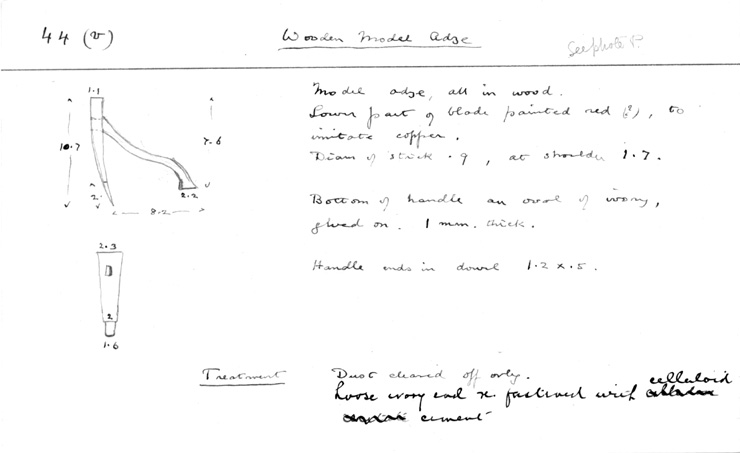 44 (v)
Wooden Model adze
See photo P.
Model adze, all in wood.
Lower part of blade painted red (?), to
imitate copper.
Diam of stick .9, at shoulder 1.7.
Bottom of handle an oval of ivory,
glued on. 1 mm. thick.
Handle ends in dowel 1.2 x .5.
1.1
10.7
7.6
2.
2.2
8.2
2.3
2
1.6
Treatment
Dust cleared off only.
Loose ivory end re fastened with celluloid
cement